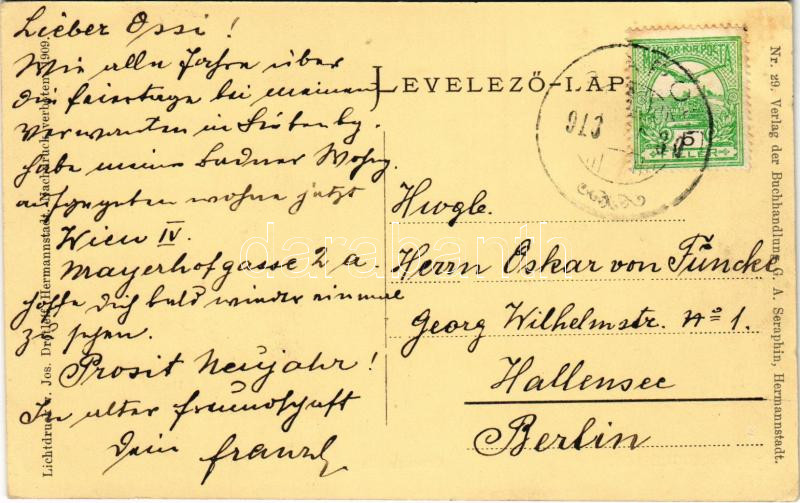 Lieber Ossi!
Wie alle Jahre über
die Feiertage bei meinen
Verwanten in Siebenbg.
habe meine Badner Wohng.
aufgegeben wohne jetzt
Wien IV.
Mayerhofgasse 2 a.
hoffe Dich bald wieder einmal
zu sehen.
Prosit Neujahr!
In alter Freundschaft
Dein Franzl
LEVELEZŐ-LAP
MAGYAR KIR. POSTA
FILLÉR
913
Hwgb.
Herrn Oskar von Füncke
Georg Wilhelmstr. No 1.
Hallensee
Berlin
Lichtdruck v. Jos. Drotleff, Hermannstadt. Nachdruck verboten. 1909.
Nr. 29. Verlag der Buchhandlung G. A. Seraphin, Hermannstadt.
darabanth